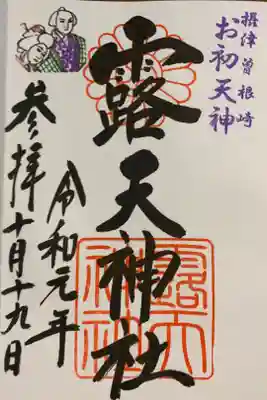 摂津曽根崎
お初天神
露天神社
露天神社
令和元年
参拝十月十九日